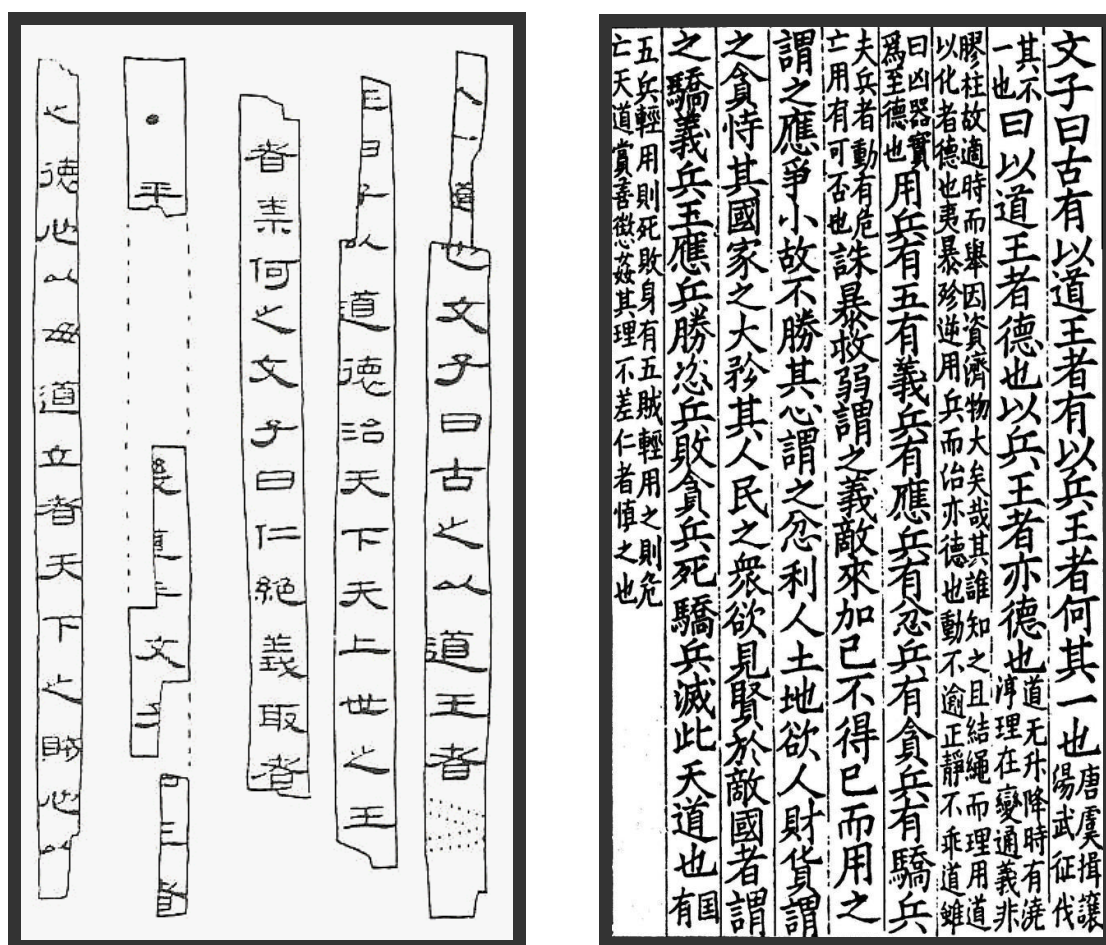 道也文子曰古之以道王者
王曰子以道德治天下夫上世之王
者柰何之文子曰仁絕義取者
•平道文子曰王者
之德也以毋道立者天下之賊也以
文子曰古有以道王者有以兵王者何其一也唐虞揖讓湯武征伐
其不一也曰以道王者德也以兵王者亦德也道无升降時有澆淳理在變通義非
膠柱故適時而舉因資濟物大矣哉其誰知之且結繩而理用道以化者德也夷暴殄逆用兵而治亦德也動不逾正靜不乖道雖
曰凶器實為至德也用兵有五有義兵有應兵有忿兵有貪兵有驕兵
夫兵者動有危亡用有可否也誅暴救弱謂之義敵來加己不得已而用之
謂之應爭小故不勝其心謂之忿利人土地欲人財貨謂
之貪恃其國家之大矜其人民之衆欲見賢於敵國者謂
之驕義兵王應兵勝忿兵敗貪兵死驕兵滅此天道也国有
五兵輕用則死敗身有五賊輕用之則危亡天道賞善懲姦其理不差仁者慎之也